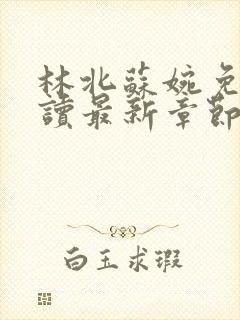 林北蘇婉免
讀最新章節
白玉求瑕